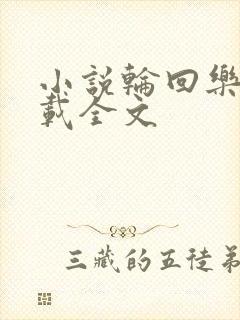 小說輪回樂
載全文
三藏的五徒弟